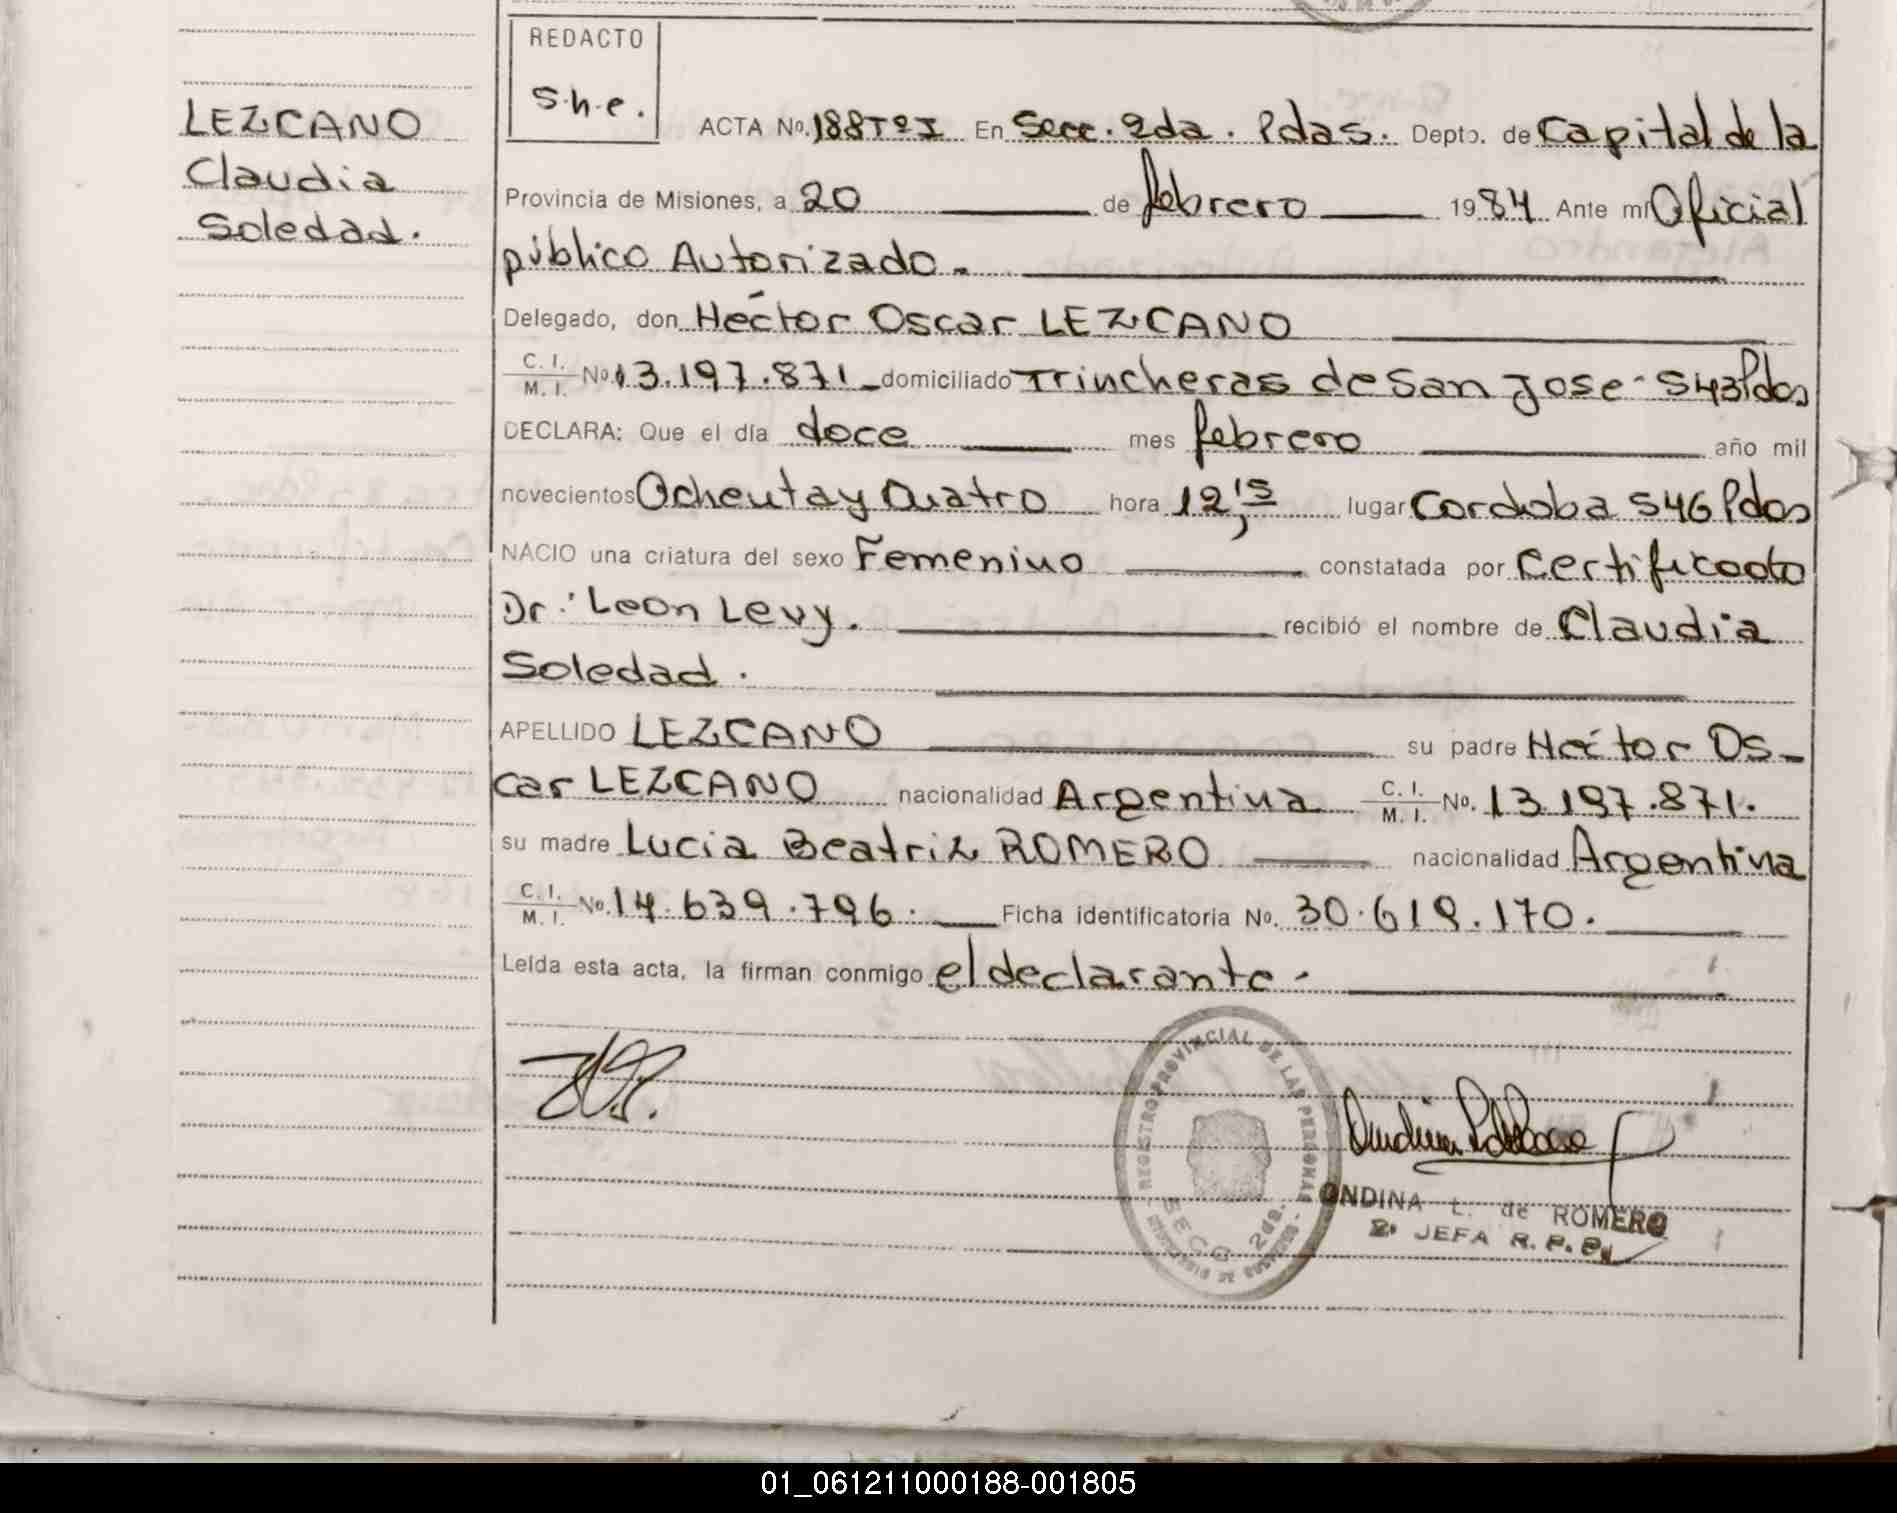 LEZCANO
Claudia
Soledad.
REDACTO
S.h.e.
ACTA No. 188 Tº I En Secc. 2da. Pdas. Depto. de Capital de la
Provincia de Misiones, a 20 de febrero 1984 Ante mí Oficial
público Autorizado.
Delegado, don Héctor Oscar LEZCANO
C. I. / M. I. No. 13.197.871 domiciliado Trincheras de San Jose - 543 Pdas
DECLARA: Que el día doce mes febrero año mil
novecientos Ochenta y Cuatro hora 12,15 lugar Cordoba 546 Pdas
NACIO una criatura del sexo Femenino constatada por Certificado
Dr. Leon Levy. recibió el nombre de Claudia
Soledad.
APELLIDO LEZCANO su padre Hector Os-
car LEZCANO nacionalidad Argentina C. I. / M. I. No. 13.197.871.
su madre Lucia Beatriz ROMERO nacionalidad Argentina
C. I. / M. I. No. 14.639.796. Ficha identificatoria No. 30.619.170.
Leída esta acta, la firman conmigo el declarante -
REGISTRO PROVINCIAL DE LAS PERSONAS
SECC. 2da.
ONDINA L. de ROMERO
2º JEFA R. P. P.
01_061211000188-001805